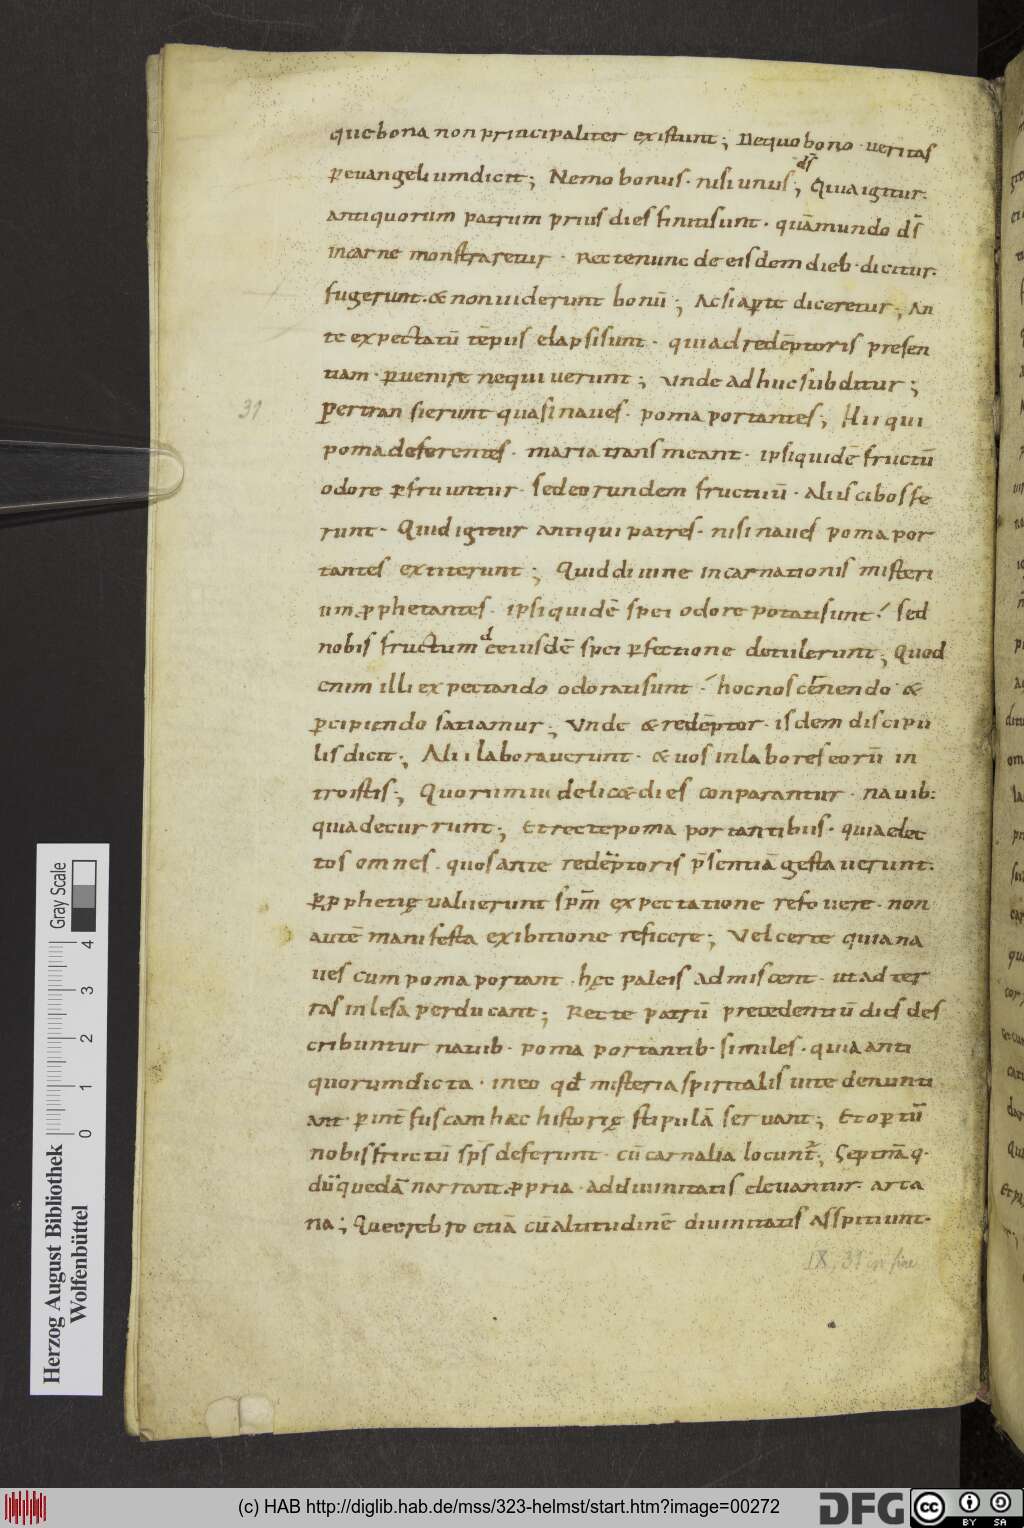 que bona non principaliter existunt; De quo bono · veritas
ꝑ euangelium dicit; Nemo bonus · nisi unus d̄s; Quia igitur
antiquorum patrum prius dies finiti sunt · quā mundo d̄s
in carne monstraretur · Recte nunc de eisdem dieb· dicitur.
fugerunt. & non uiderunt bonū; Ac si aꝑte diceretur; An
te expectatū tēpus elapsi sunt · quia ad redēptoris presen
tiam · ꝑuenire nequiuerunt; Vnde adhuc subditur;
Pertransierunt quasi naues · poma portantes; Hii qui
poma deferentes · maria transmeant · ipsi quidē fructū
odore ꝑfruuntur · sed eorundem fructuū · aliis cibos fe
runt · Quid igitur antiqui patres · nisi naues poma por
tantes extiterunt; Quid diuine incarnationis misteri
um ꝓphetantes · ipsi quidē spei odore potati sunt · sed
nobis fructum de eiusdē spei ꝑfectione detulerunt; Quod
enim illi expectando odorati sunt · hoc nos cernendo &
ꝑcipiendo satiamur; Vnde & redēptor · isdem discipu
lis dicit; Alii laborauerunt · & uos in labores eorū in
troistis; Quorum uidelic& dies conparantur · nauib:
quia decurrunt; Et recte poma portantibus · quia elec
tos omnes · quos ante redēptoris p̄sentiā gestauerunt.
ꝑ ꝓphetię ualuerunt sp̄m expectatione refouere · non
autē manifesta exibitione reficere; Vel certe quia na
ues cum poma portant · hęc paleis admiscent · ut ad ter
ras inlesa perducant; Recte patrū precedentiū dies des
cribuntur nauib· poma portantib· similes · quia anti
quorum dicta · in eo qd̄ misteria spiritalis uite denunti
ant · ꝑ intē fuscam haec historię stipulā seruant; Et oꝑtū
nobis fructū sp̄s deferunt · cū carnalia locunt̄; Septenā q·
dū quedā narrant · ꝓpria · ad diuinitatis eleuantur · arca
na; Quae crebro etiā cū altitudinē diuinitatis asspitiunt·
31
IX, 31 in fine
Gray Scale
4
3
2
1
0
Herzog August Bibliothek
Wolfenbüttel
(c) HAB http://diglib.hab.de/mss/323-helmst/start.htm?image=00272
DFG
cc
BY SA